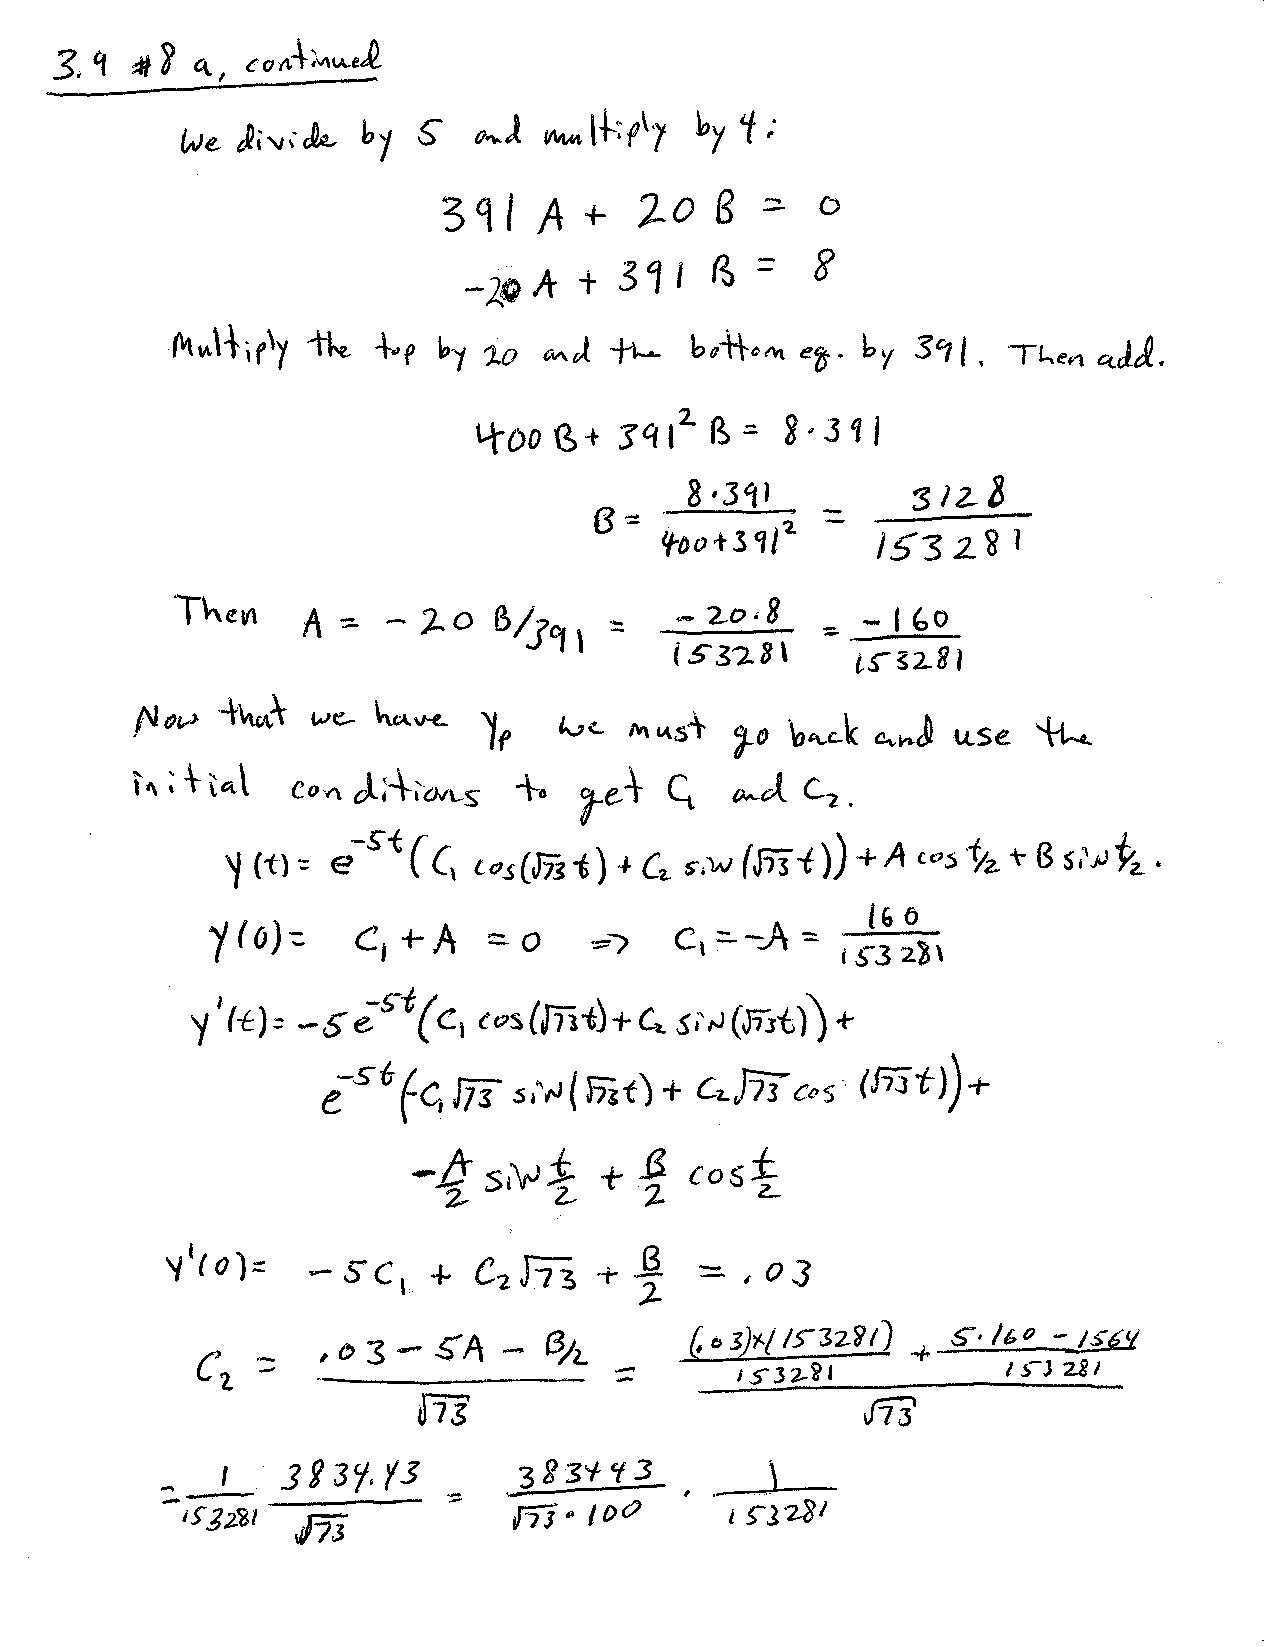 3.9 #8 a, continued
We divide by 5 and multiply by 4:
391 A + 20 B = 0
-20 A + 391 B = 8
Multiply the top by 20 and the bottom eq. by 391. Then add.
400 B + 391² B = 8·391
B = 8·391 / (400+391²) = 3128 / 153281
Then A = -20 B/391 = -20·8 / 153281 = -160 / 153281
Now that we have yp we must go back and use the
initial conditions to get C₁ and C₂.
y(t) = e^-5t (C₁ cos(√73 t) + C₂ sin(√73 t)) + A cos t/2 + B sin t/2.
y(0) = C₁ + A = 0 => C₁ = -A = 160 / 153281
y'(t) = -5 e^-5t (C₁ cos(√73 t) + C₂ sin(√73 t)) +
e^-5t (-C₁ √73 sin(√73 t) + C₂ √73 cos (√73 t)) +
-A/2 sin t/2 + B/2 cos t/2
y'(0) = -5C₁ + C₂√73 + B/2 = .03
C₂ = (.03 - 5A - B/2) / √73 = ((.03)×(153281) / 153281 + (5·160 - 1564) / 153281) / √73
= 1/153281 3834.43/√73 = 383443 / (√73 · 100) · 1 / 153281